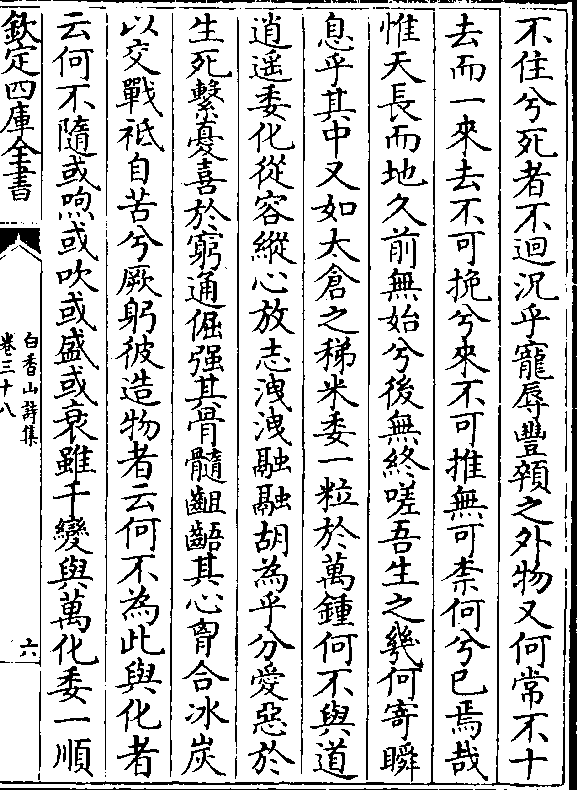 不住兮死者不迴況乎寵辱豐顇之外物又何常不十
去而一來去不可挽兮來不可推無可柰何兮已焉哉
惟天長而地久前無始兮後無終嗟吾生之幾何寄瞬
息乎其中又如太倉之稊米委一粒於萬鍾何不與道
逍遥委化從容縱心放志洩洩融融胡為乎分愛惡於
生死繫憂喜於窮通倔强其骨髓齟齬其心胷合冰炭
以交戰祗自苦兮厥躬彼造物者云何不為此與化者
云何不隨或呴或吹或盛或衰雖千變與萬化委一順
欽定四庫全書
白香山詩集
卷三十八
六